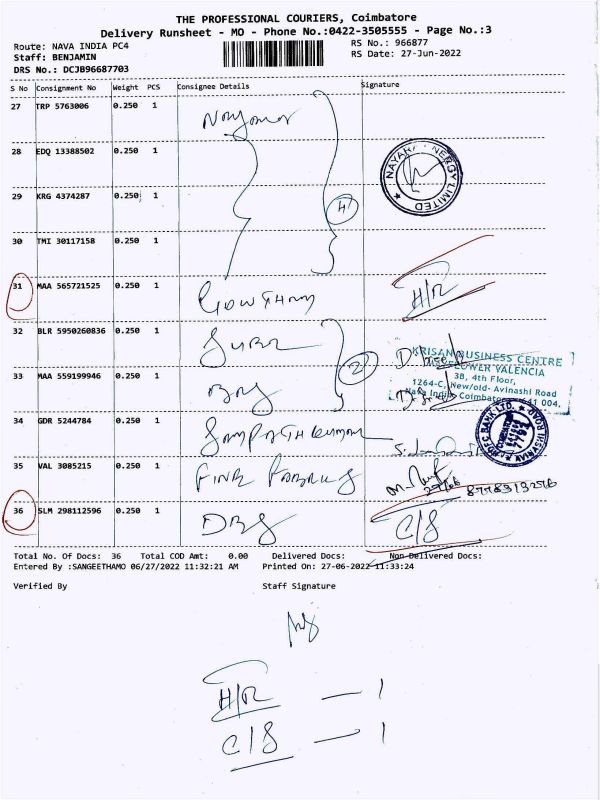 THE PROFESSIONAL COURIERS, Coimbatore
Delivery Runsheet - MO - Phone No.:0422-3505555 - Page No.:3
Route: NAVA INDIA PC4 RS No.: 966877
Staff: BENJAMIN RS Date: 27-Jun-2022
DRS No.: DCJB96687703
S No Consignment No Weight PCS Consignee Details Signature
27 TRP 5763006 0.250 1
28 EDQ 13388502 0.250 1 NAYARA ENERGY LIMITED
29 KRG 4374287 0.250 1 4
30 TMI 30117158 0.250 1
31 MAA 565721525 0.250 1 Gowtham H/R
32 BLR 5950260836 0.250 1
KRISAN BUSINESS CENTRE
MAYFLOWER VALENCIA
3B, 4th Floor,
1264-C, New/old- Avinashi Road
Nava India Coimbatore 641 004.
33 MAA 559199946 0.250 1 2
34 GDR 5244784 0.250 1 Sampathkumar
HDFC BANK LTD.
35 VAL 3085215 0.250 1 Fine Fabrics
36 SLM 298112596 0.250 1 C/S
Total No. Of Docs: 36 Total COD Amt: 0.00 Delivered Docs: Non Delivered Docs:
Entered By :SANGEETHAMO 06/27/2022 11:32:21 AM Printed On: 27-06-2022 11:33:24
Verified By Staff Signature
H/R — 1
C/S — 1